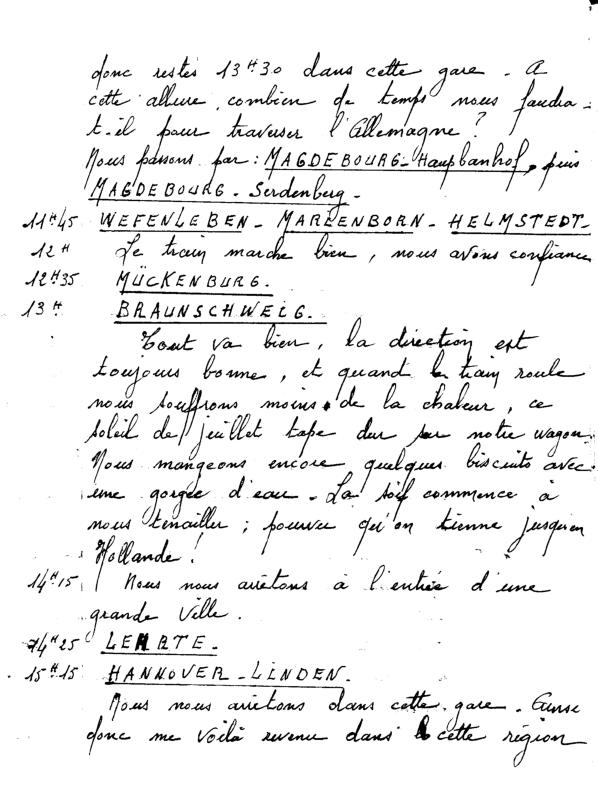 donc restés 13H30 dans cette gare - A
cette allure, combien de temps nous faudra-
t-il pour traverser l'Allemagne ?
Nous passons par : MAGDEBOURG-Haupbanhof, puis
MAGDEBOURG - Serdenberg -
11H45 WEFENLEBEN - MARIENBORN - HELMSTEDT -
12H Le train marche bien, nous avons confiance
12H35 MÜCKENBURG.
13H BRAUNSCHWEIG.
Tout va bien, la direction est
toujours bonne, et quand le train roule
nous souffrons moins de la chaleur, ce
soleil de juillet tape dur sur notre wagon.
Nous mangeons encore quelques biscuits avec
une gorgée d'eau - La soif commence à
nous tenailler ; pourvu qu'on tienne jusqu'en
Hollande !
14H15 Nous nous arrêtons à l'entrée d'une
grande Ville.
14H25 LEHRTE -
15H15 HANNOVER - LINDEN.
Nous nous arrêtons dans cette gare - Ainsi
donc me voilà revenu dans cette région